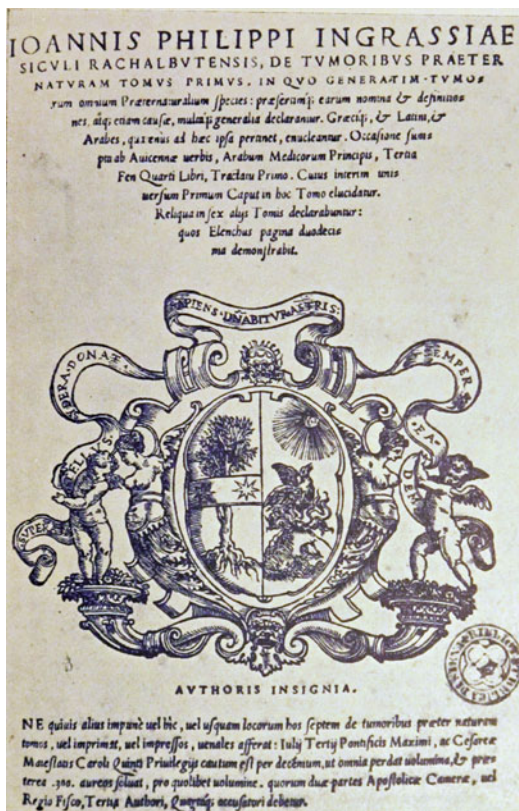 IOANNIS PHILIPPI INGRASSIAE
SICVLI RACHALBVTENSIS, DE TVMORIBVS PRAETER
NATVRAM TOMVS PRIMVS. IN QVO GENERATIM TVMO⸗
rum omnium Præternaturalium species: præterimq; earum nomina & definitio⸗
nes, atq; etiam causæ, multaq; generalia declarantur. Græciq;, & Latini, &
Arabes, qui eius ad hæc ipsa pertinet, enucleantur. Occasione sum⸗
pta ab Auicennæ uerbis, Arabum Medicorum Principis, Tertia
Fen Quarti Libri, Tractatu Primo. Cuius interim uni⸗
uersum Primum Caput in hoc Tomo elucidatur.
Reliqua in sex alijs Tomis declarabuntur:
quos Elenchus pagina duodeci⸗
ma demonstrabit.
SAPIENS DÑABITVR ASTRIS:
SIDERA DONAT
SEMPER
EA
AVTHORIS INSIGNIA.
NE quiuis alius impunè uel hîc, uel usquam locorum hos septem de tumoribus præter naturam
tomos, uel imprimat, uel impressos, uenales afferat: Iulij Tertij Pontificis Maximi, ac Cesareæ
Maiestatis Caroli Quinti Priuilegijs cautum est per decennium, ut omnia perdat uolumina, & præ⸗
terea .300. aureos soluat, pro quolibet uolumine. quorum duæ partes Apostolicæ Cameræ, uel
Regio Fisco, Tertia Authori, Quartaq; accusatori debetur.